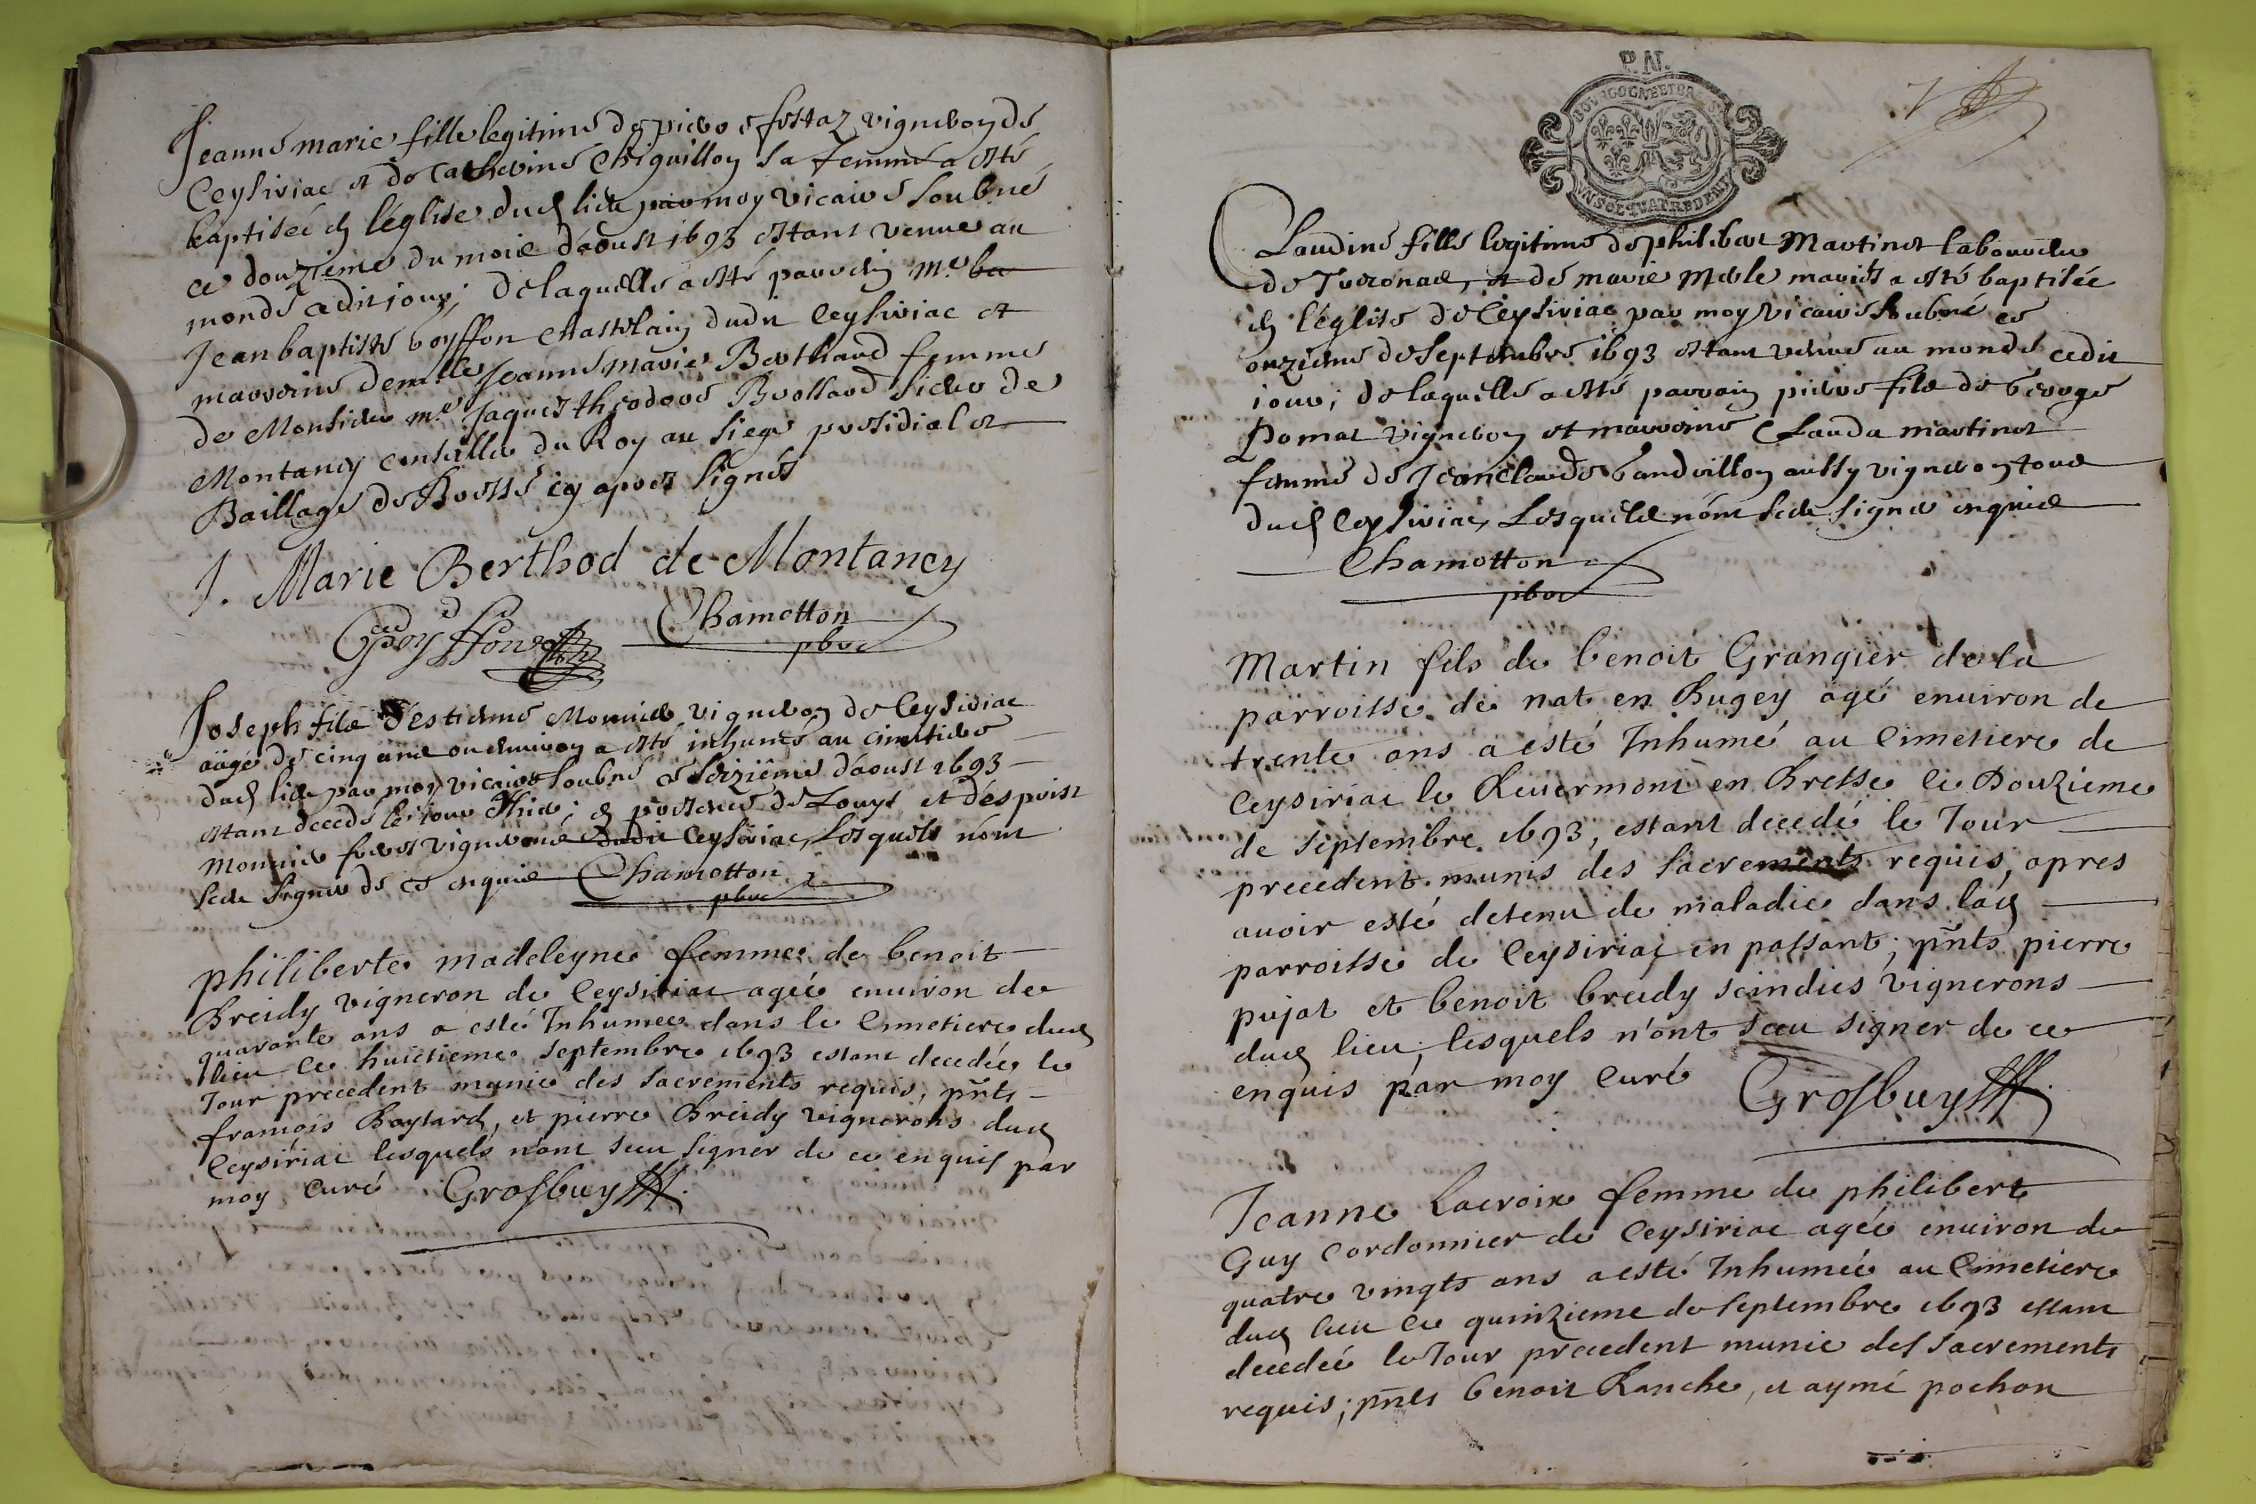 Jeanne marie fille legitime de pierre festaz vigneron de
Ceysiriac et de Catherine Chiquillon sa femme a esté
baptiseé en l'église dud lieu par moy vicaire soubné
ce douzieme du mois d'aoust 1693 estant venue au
monde cedit jour; de laquelle a esté parrain me
Jean baptiste boysson Chastelain dudit Ceysiriac et
marreine demlle Jeanne marie Berthaud femme
de Monsieur me Jaques theodore Brollard sieur de
Montancy conseiller du Roy au siege presidial et
Baillage de Bresse cy apres signés
J. Marie Berthod de Montancy
Boysson
Chamotton
pbre
Joseph fils d'estienne Monnier vigneron de Ceysiriac
aagé de cinq ans ou environ a esté inhumé au cimetiere
dud lieu par moy vicaire soubné ce seizième d'aoust 1693
estant decedé le jour d'hier; en presence de Louys et
Monnier freres vignerons dudit Ceysiriac, lesquels n'ont
sceu signer de ce enquis Chamotton
pbre
philiberte madeleyne femme de benoit
Breidy vigneron de Ceysiriac ageé environ de
quarante ans a esté Inhumeé dans le Cimetiere dud
lieu Ce huictieme septembre 1693 estant decedeé le
Jour precedent munie des sacrements requis; pnts
francois Baytard, et pierre Breidy vignerons dud
Ceysiriac lesquels n'ont sceu signer de ce enquis par
moy Curé Grosbuy
P.N.
BOURGOGNE ET BRESSE
UN SOL QUATRE DEN
Claudine fille legitime de philibert Martinet laboureur
de Tre­conas, et de marie Merle mariés a esté baptisée
en l'église de Ceysiriac par moy vicaire soubné ce
onzieme de Septembre 1693 estant venue au monde cedit
jour; de laquelle a esté parrain pierre fils de George
Pomat vigneron et marreine Clauda martinet
femme de Jeanclaude Gandvillon aussy vigneron tous
dud Ceysiriac, Lesquels n'ont sceu signer enquis
Chamotton
pbre
Martin fils de benoit Grangier de la
parroisse de nat en Bugey agé environ de
trente ans a esté Inhumé au Cimetiere de
Ceysiriac le Revermont en Bresse Ce Douzieme
de septembre 1693, estant decedé le Jour
precedent munis des sacrements requis, apres
avoir esté detenu de maladie dans lad
parroisse de Ceysiriac en passant; pnts pierre
pujat et benoit breidy scindics vignerons
dud lieu; lesquels n'ont sceu signer de ce
enquis par moy Curé Grosbuy
Jeanne Lacroix femme de philibert
Guy Cordonnier de Ceysiriac ageé environ de
quatre vingts ans a esté Inhumeé au Cimetiere
dud lieu Ce quinzieme de septembre 1693 estant
decedeé le Jour precedent munie des sacrements
requis; pnts benoit Ranche, et aymé pochon